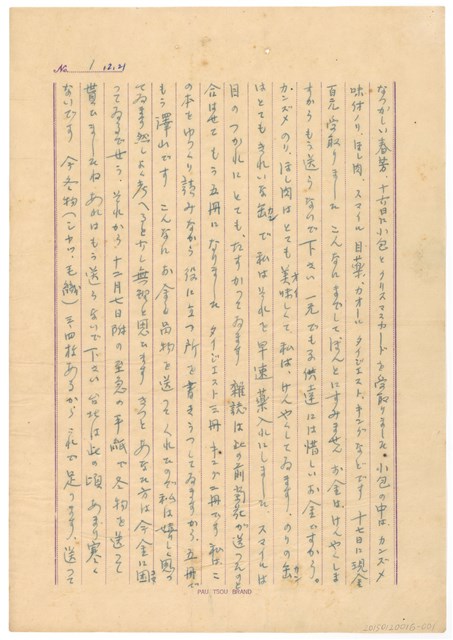 No. 1 12.21
なつかしい春芳、十六日に小包とクリスマスカードを受取りました。小包の中は、カンヅメ
味付ノリ、ほし肉、スマイル目薬、カオール、ダイジェスト、キングなどです 十七日に現金
百元受取りました こんなにまでしてほんとにすみません お金はけんやくしま
すからもう送らないで下さい 一元でも子供達には惜しいお金ですから。
カンヅメ、のり、ほし肉はとても美味しくて私は、けんやくしてゐます、のりの缶
はとてもきれいな缶で私はそれを早速薬入れにしました、スマイルは
目のつかれにとても、たすかつてゐます 雑誌は此の前 が送つたのと
合はせてもう五冊になりました ダイジェスト三冊 キング二冊です 私はこ
の本をゆつくり読みながら役に立つ所を書きうつしてゐますから、五冊で
もう澤山です こんなにお金や品物を送つてくれたので私は嬉しく思つ
てゐます然しよく考へると少し無理と思ひます きつとあなた方は今金に困
つてゐるでせう、それから十二月七日附の至急の手紙で冬物を送つて
貰ひましたね あれはもう送らないで下さい 台北は此の頃あまり寒く
ないです 今冬物(シャツ、毛織)三、四枚あるからこれで足ります、送つて
PAU TSOU BRAND
20150120016-001